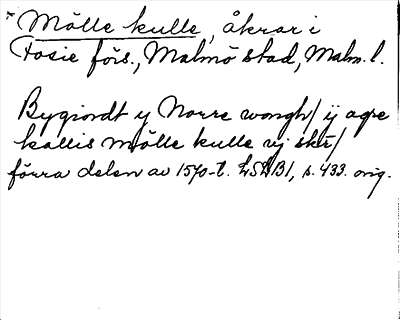 * Mölle kulle, åkrar i
Fosie förs., Malmö stad, Malm. l.
Bygiordt y Norre wongh/ ij agre
kallis Mölle kulle vj skr/
förra delen av 1570-t. LSLB1, s. 433. orig.